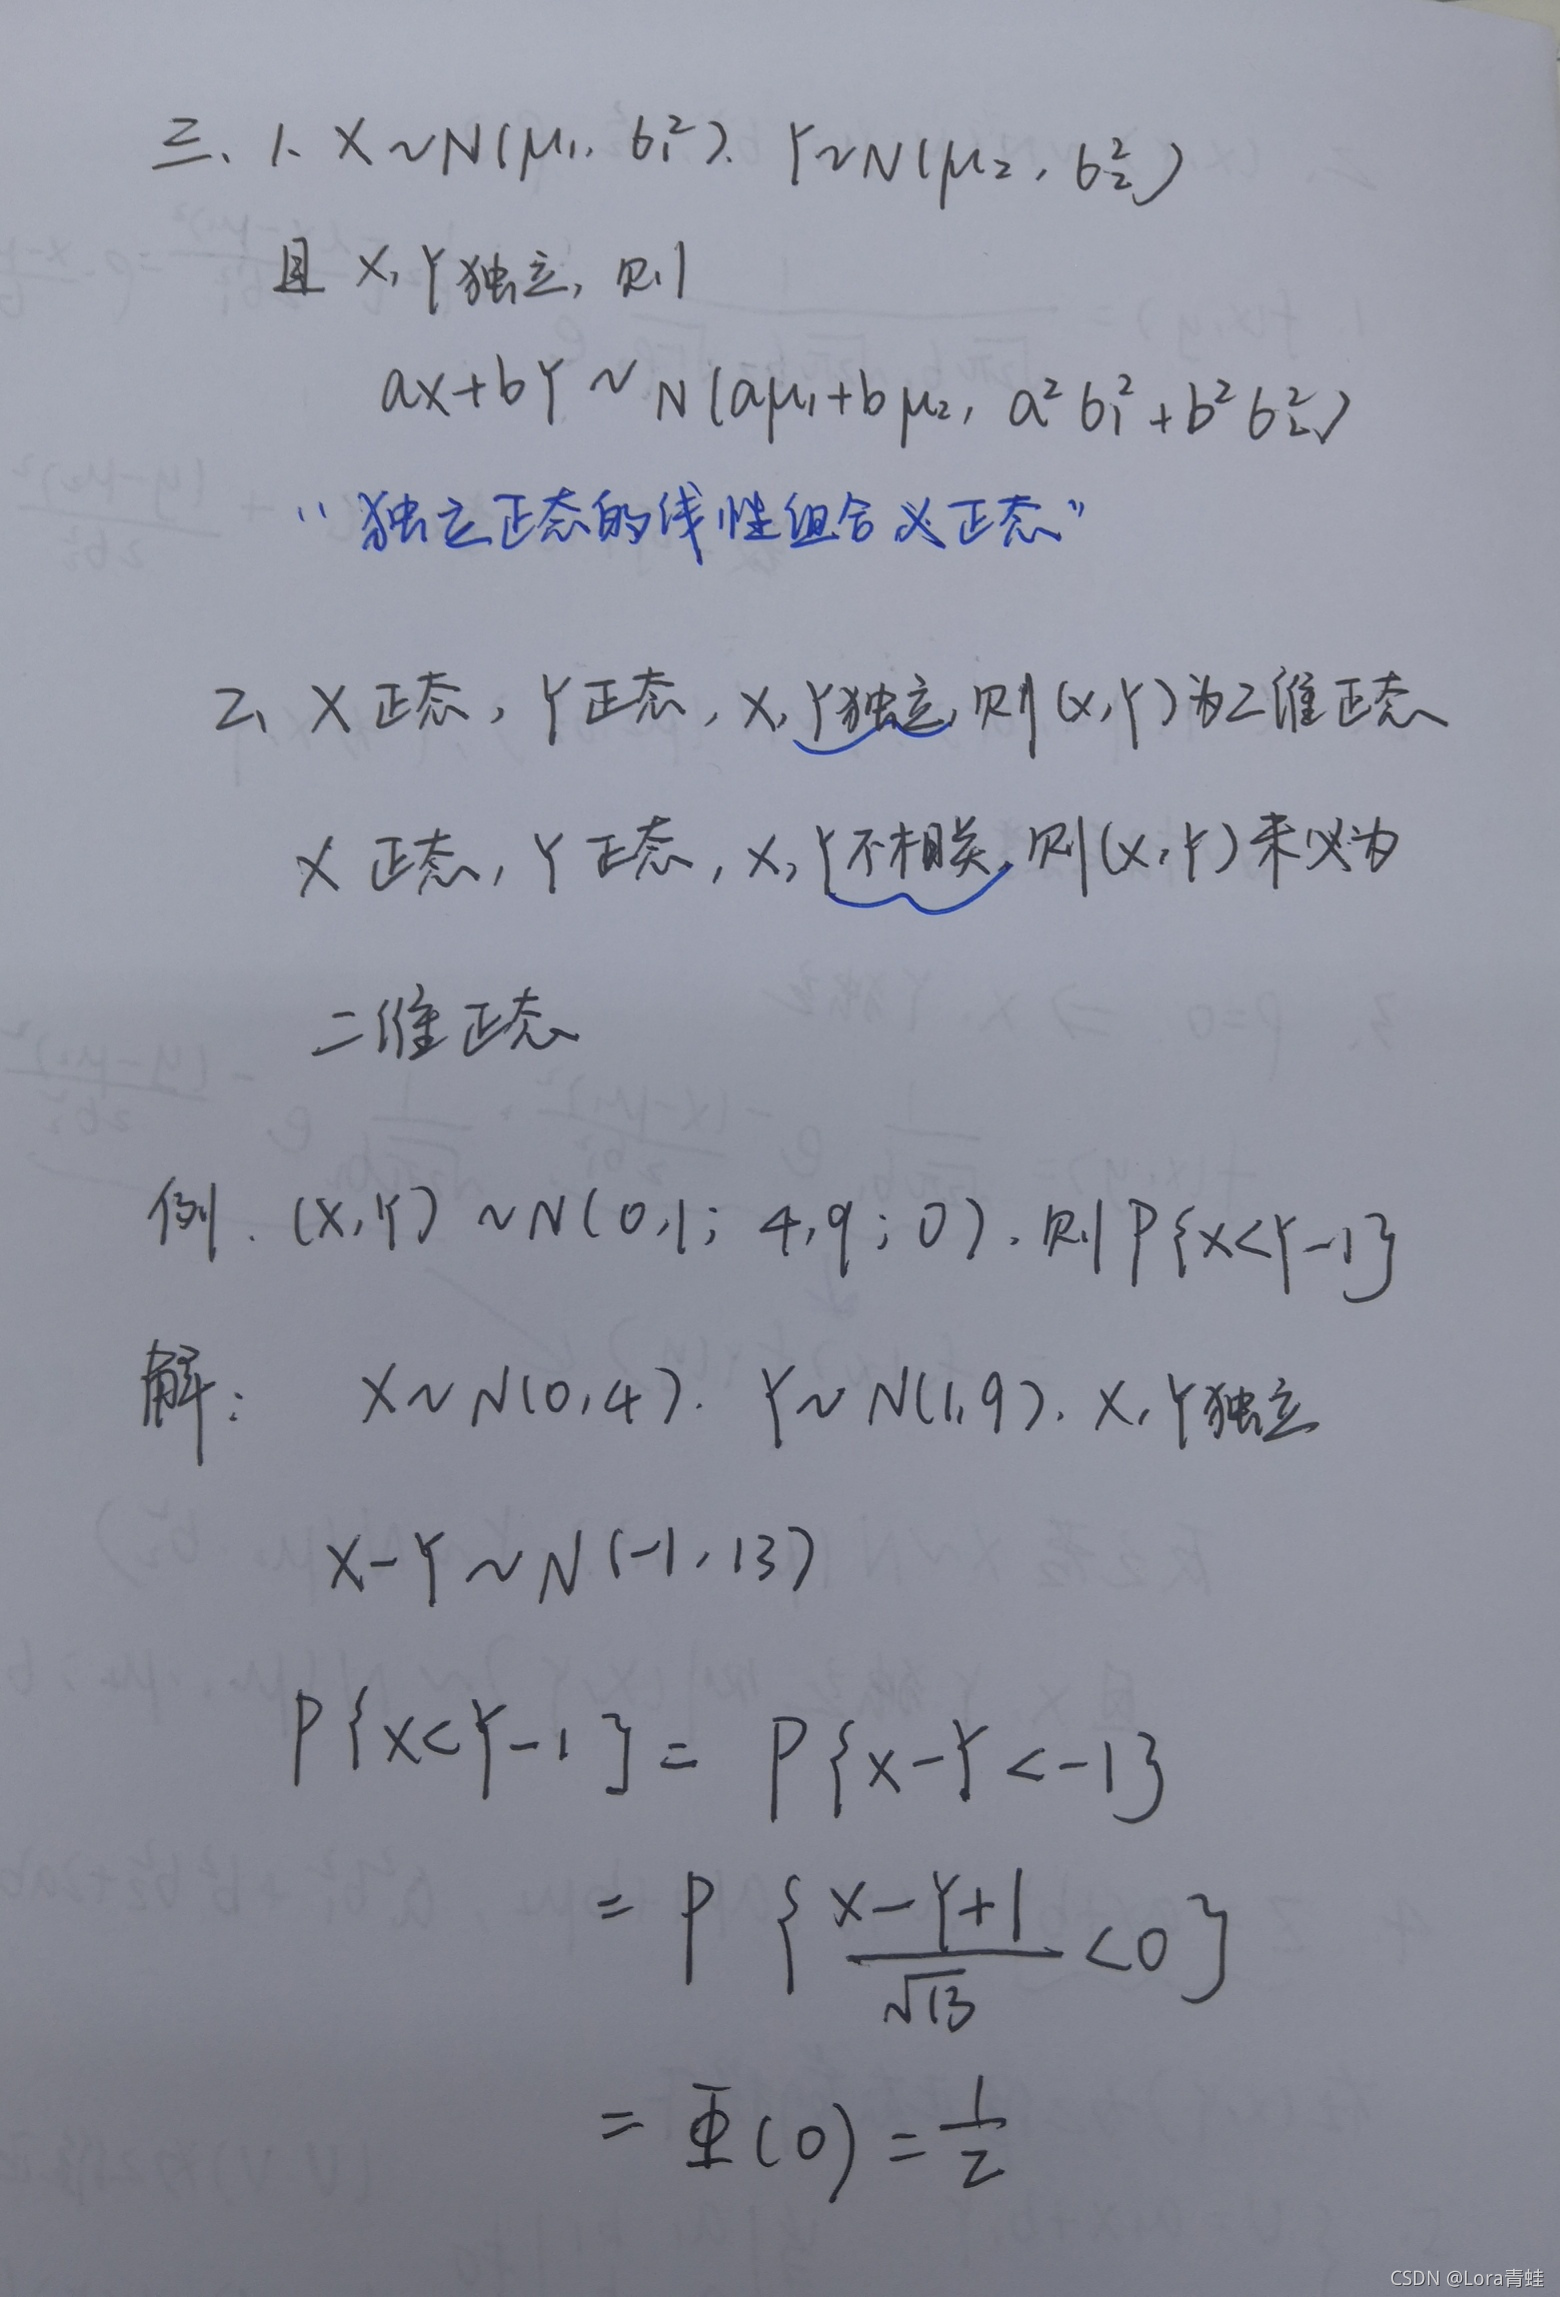 三、1、X~N(μ₁, σ₁²), Y~N(μ₂, σ₂²)
且 X, Y独立, 则
aX+bY ~ N(aμ₁+bμ₂, a²σ₁²+b²σ₂²)
“独立正态的线性组合必正态”
2、X正态, Y正态, X, Y独立, 则(X,Y)为二维正态
X正态, Y正态, X, Y不相关, 则(X,Y)未必为
二维正态
例. (X,Y) ~N(0,1; 4,9; 0). 则P{X<Y-1}
解: X~N(0,4). Y~N(1,9). X, Y独立
X-Y~N(-1,13)
P{X<Y-1}= P{X-Y<-1}
= P{(X-Y+1)/√13 <0}
= Φ(0)=1/2
CSDN @Lora青蛙